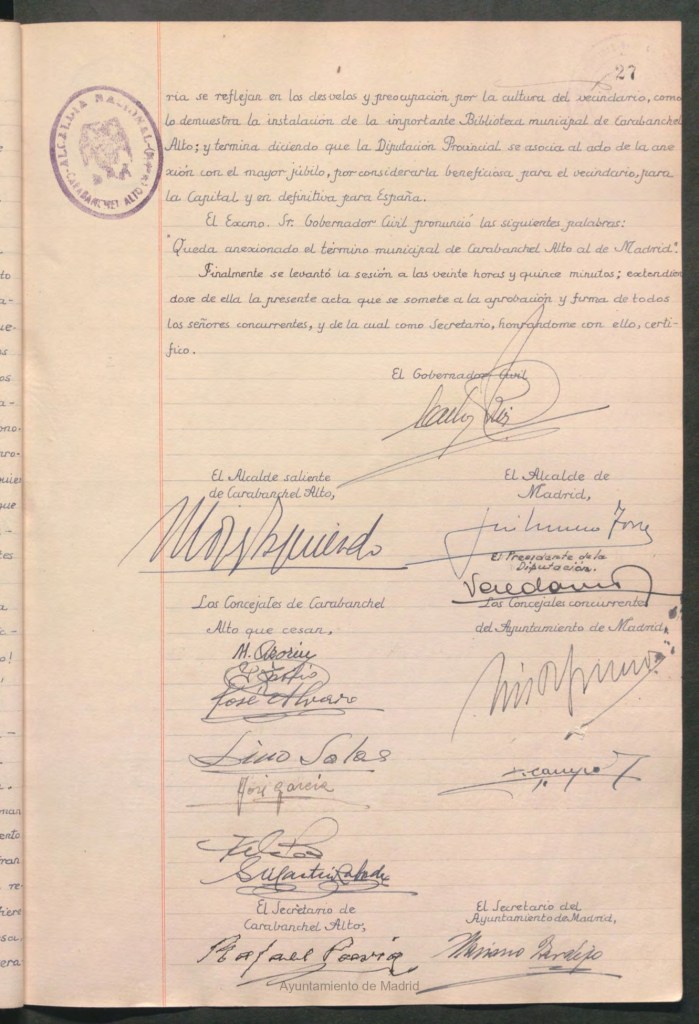 27
ALCALDIA NACIONAL
CARABANCHEL ALTO
ria se reflejan en los desvelos y preocupación por la cultura del vecindario, como
lo demuestra la instalación de la importante Biblioteca municipal de Carabanchel
Alto; y termina diciendo que la Diputación Provincial se asocia al acto de la ane-
xión con el mayor júbilo, por considerarla beneficiosa para el vecindario, para
la Capital y en definitiva para España.
El Excmo. Sr. Gobernador Civil pronunció las siguientes palabras:
"Queda anexionado el término municipal de Carabanchel Alto al de Madrid".
Finalmente se levantó la sesión a las veinte horas y quince minutos; extendién
dose de ella la presente acta que se somete a la aprobación y firma de todos
los señores concurrentes, y de la cual como Secretario, honrándome con ello, certi-
fico.
El Gobernador Civil
Carlos Ruiz
El Alcalde saliente
de Carabanchel Alto,
El Alcalde de
Madrid,
El Presidente de la
Diputación.
Los Concejales de Carabanchel
Alto que cesan,
Los Concejales concurrentes
del Ayuntamiento de Madrid,
M. Azorin
José Alvaro
Lino Salas
José García
El Secretario de
Carabanchel Alto,
El Secretario del
Ayuntamiento de Madrid,
Rafael Pavía
Mariano
Ayuntamiento de Madrid